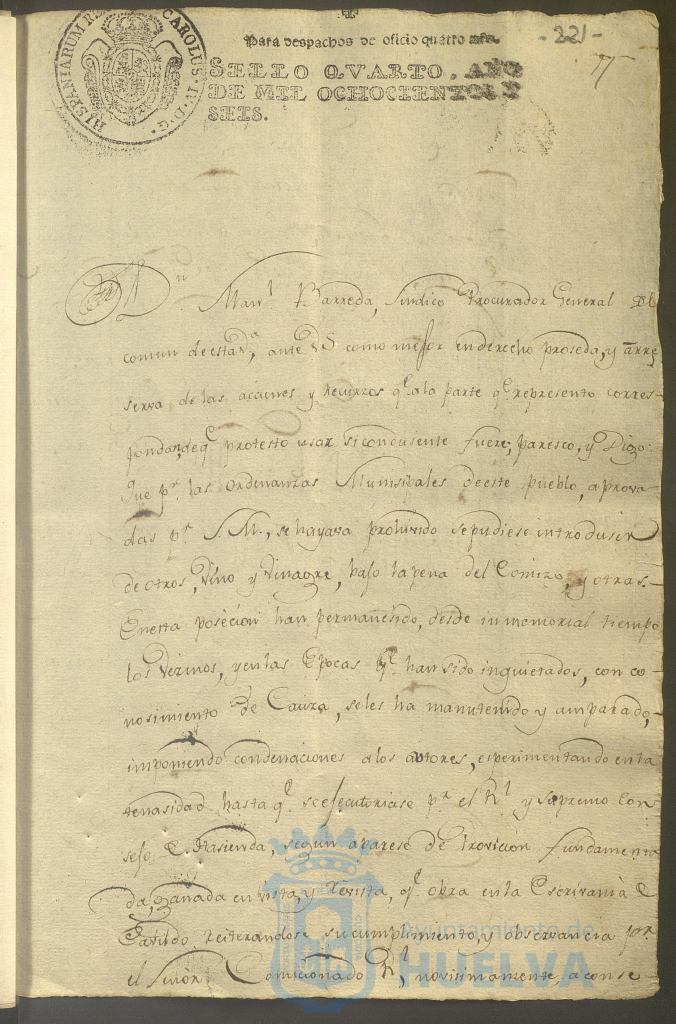 HISPANIARUM R CAROLUS IV D G
Para despachos de oficio quatro mrs.
- 221 -
SELLO QVARTO, AÑO
DE MIL OCHOCIENTOS Y
SEIS.
Dn Manl Barreda, Sindico Procurador General del
comun de esta va, ante VS como mejor en derecho proseda, y a rre
serva de las acciones y recurzos qe. a la parte qe. represento corres-
pondan, de qe protesto usar si condusente fuere; paresco, y Digo:
Que pr. las Ordenanzas Munisipales de este pueblo, aprova
das pr S. M., se hayava prohivido se pudiese introdusir
de otros, Vino y Vinagre, bajo la pena del Comizo, y otras.
En esta poseción han permanesido, desde inmemorial tiempo
los Vezinos, y en las Epocas qe. han sido inquietados, con co-
nosimiento de Cauza, se les ha manutenido y amparado,-
imponiendo condenaciones a los autores, esperimentando en la
tenasidad hasta qe. se ejecutoriase pr el Rl y Supremo Con
sejo de Hasienda, segun aparese de Provicion fundamenta
da, ganada en vista, y Revista, qe. obra en la Escrivania de
Cavildo reiterandose su cumplimiento, y observancia pr.
el Señor Comicionado Rl, novisimamente, a conse
Ayuntamiento de
HUELVA